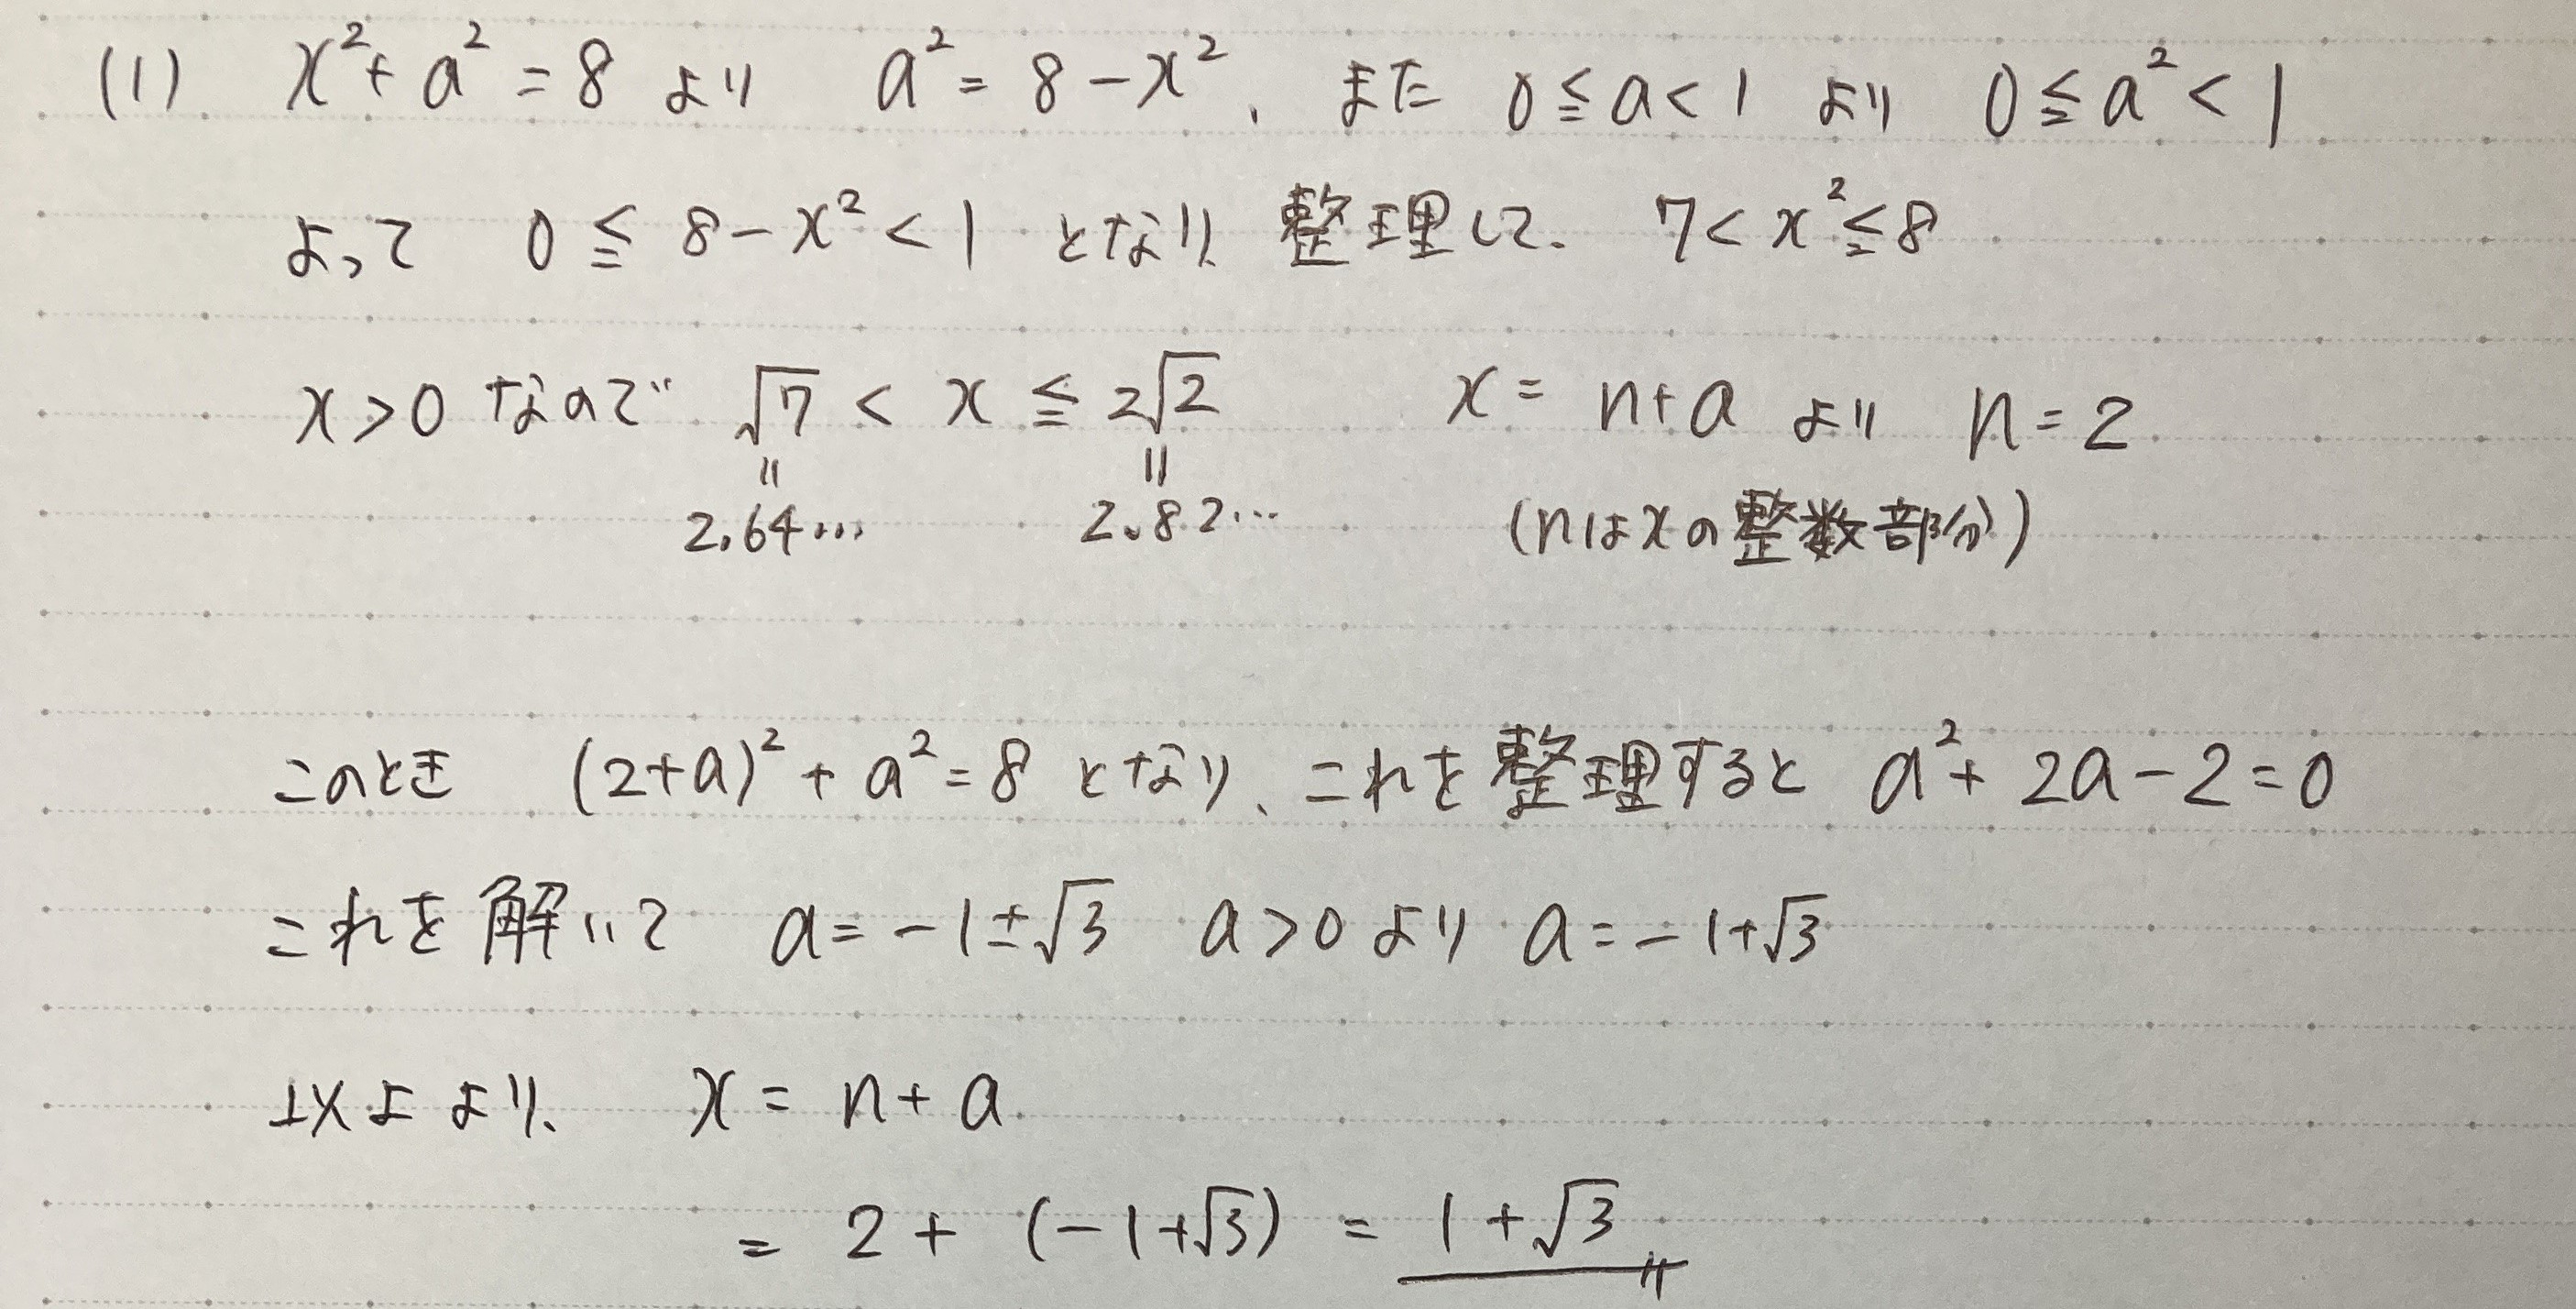 (1) x²+a²=8 より a²=8-x²、また 0≦a<1 より 0≦a²<1
よって 0≦8-x²<1 となり、整理して、7<x²≦8
x>0 なので √7<x≦2√2 x=n+a より n=2
〃 〃
2.64… 2.82… (nはxの整数部分)
このとき (2+a)²+a²=8 となり、これを整理すると a²+2a-2=0
これを解いて a=-1±√3 a>0より a=-1+√3
以上より、x=n+a
=2+(-1+√3)=1+√3〃